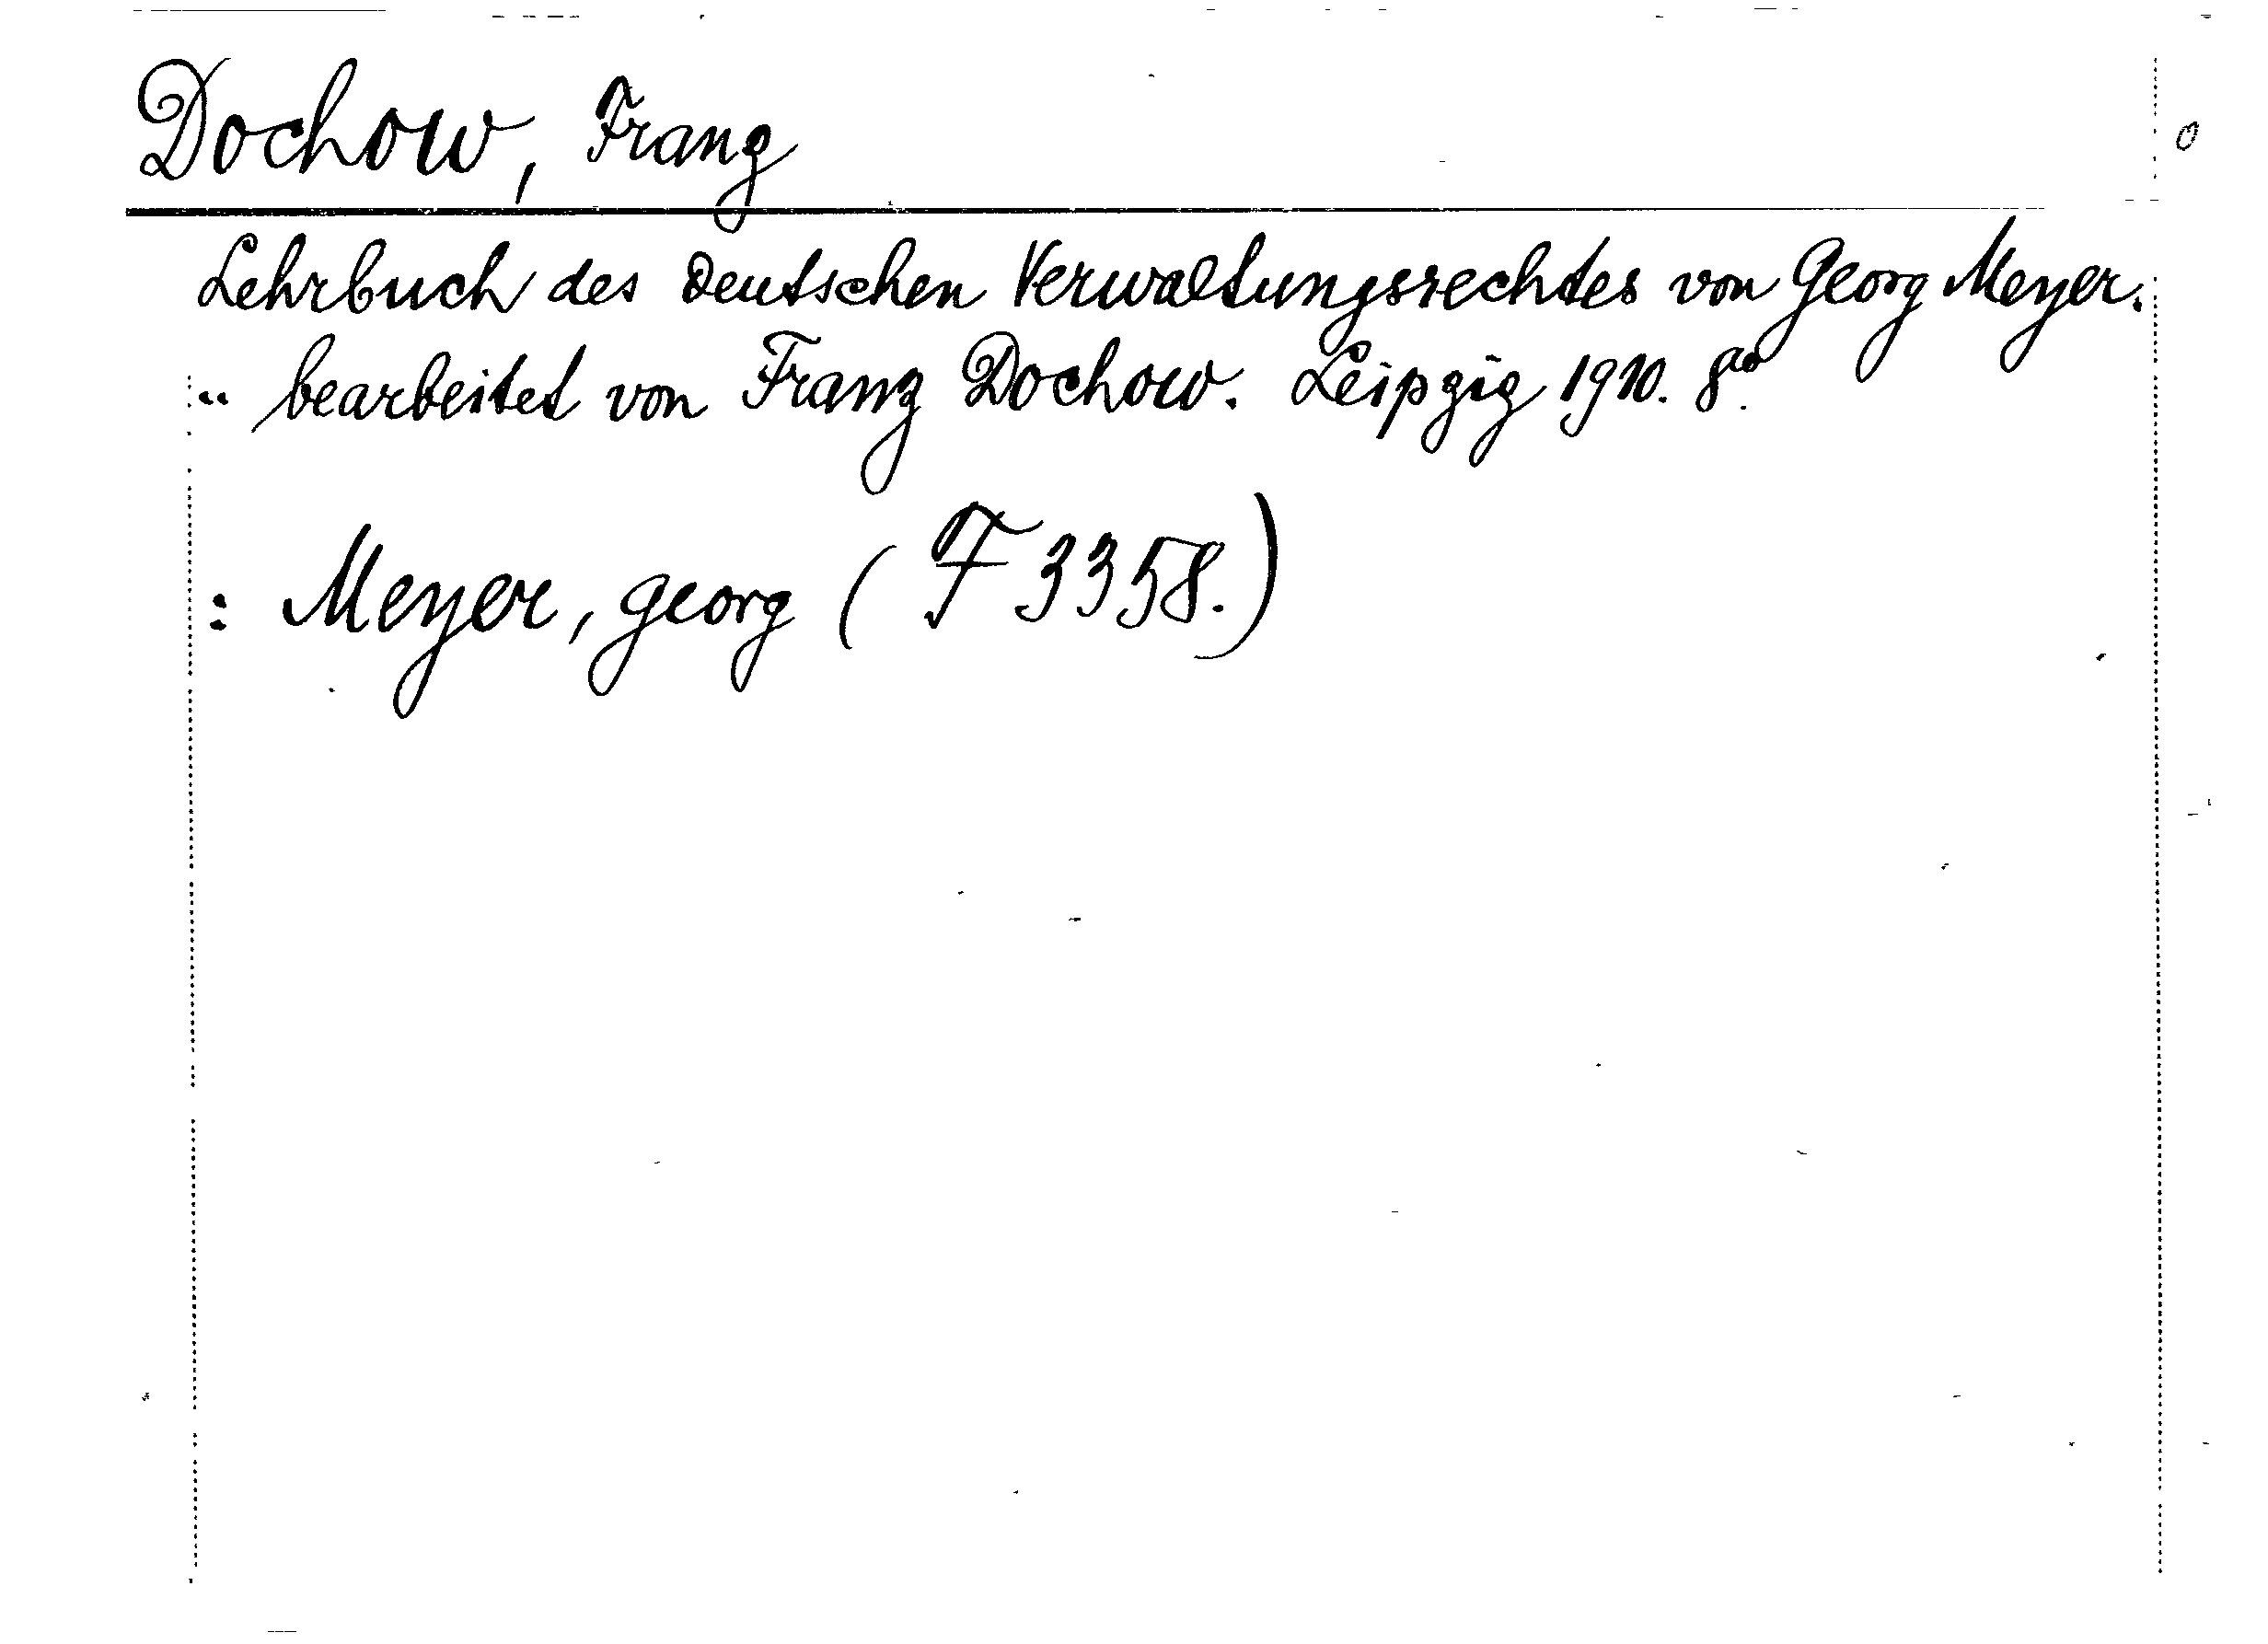 Dochow, Franz
Lehrbuch des Deutschen Verwaltungsrechtes von Georg Meyer.
.. bearbeitet von Franz Dochow. Leipzig 1910. 8ᵛᵒ.
: Meyer, Georg (F 3358.)